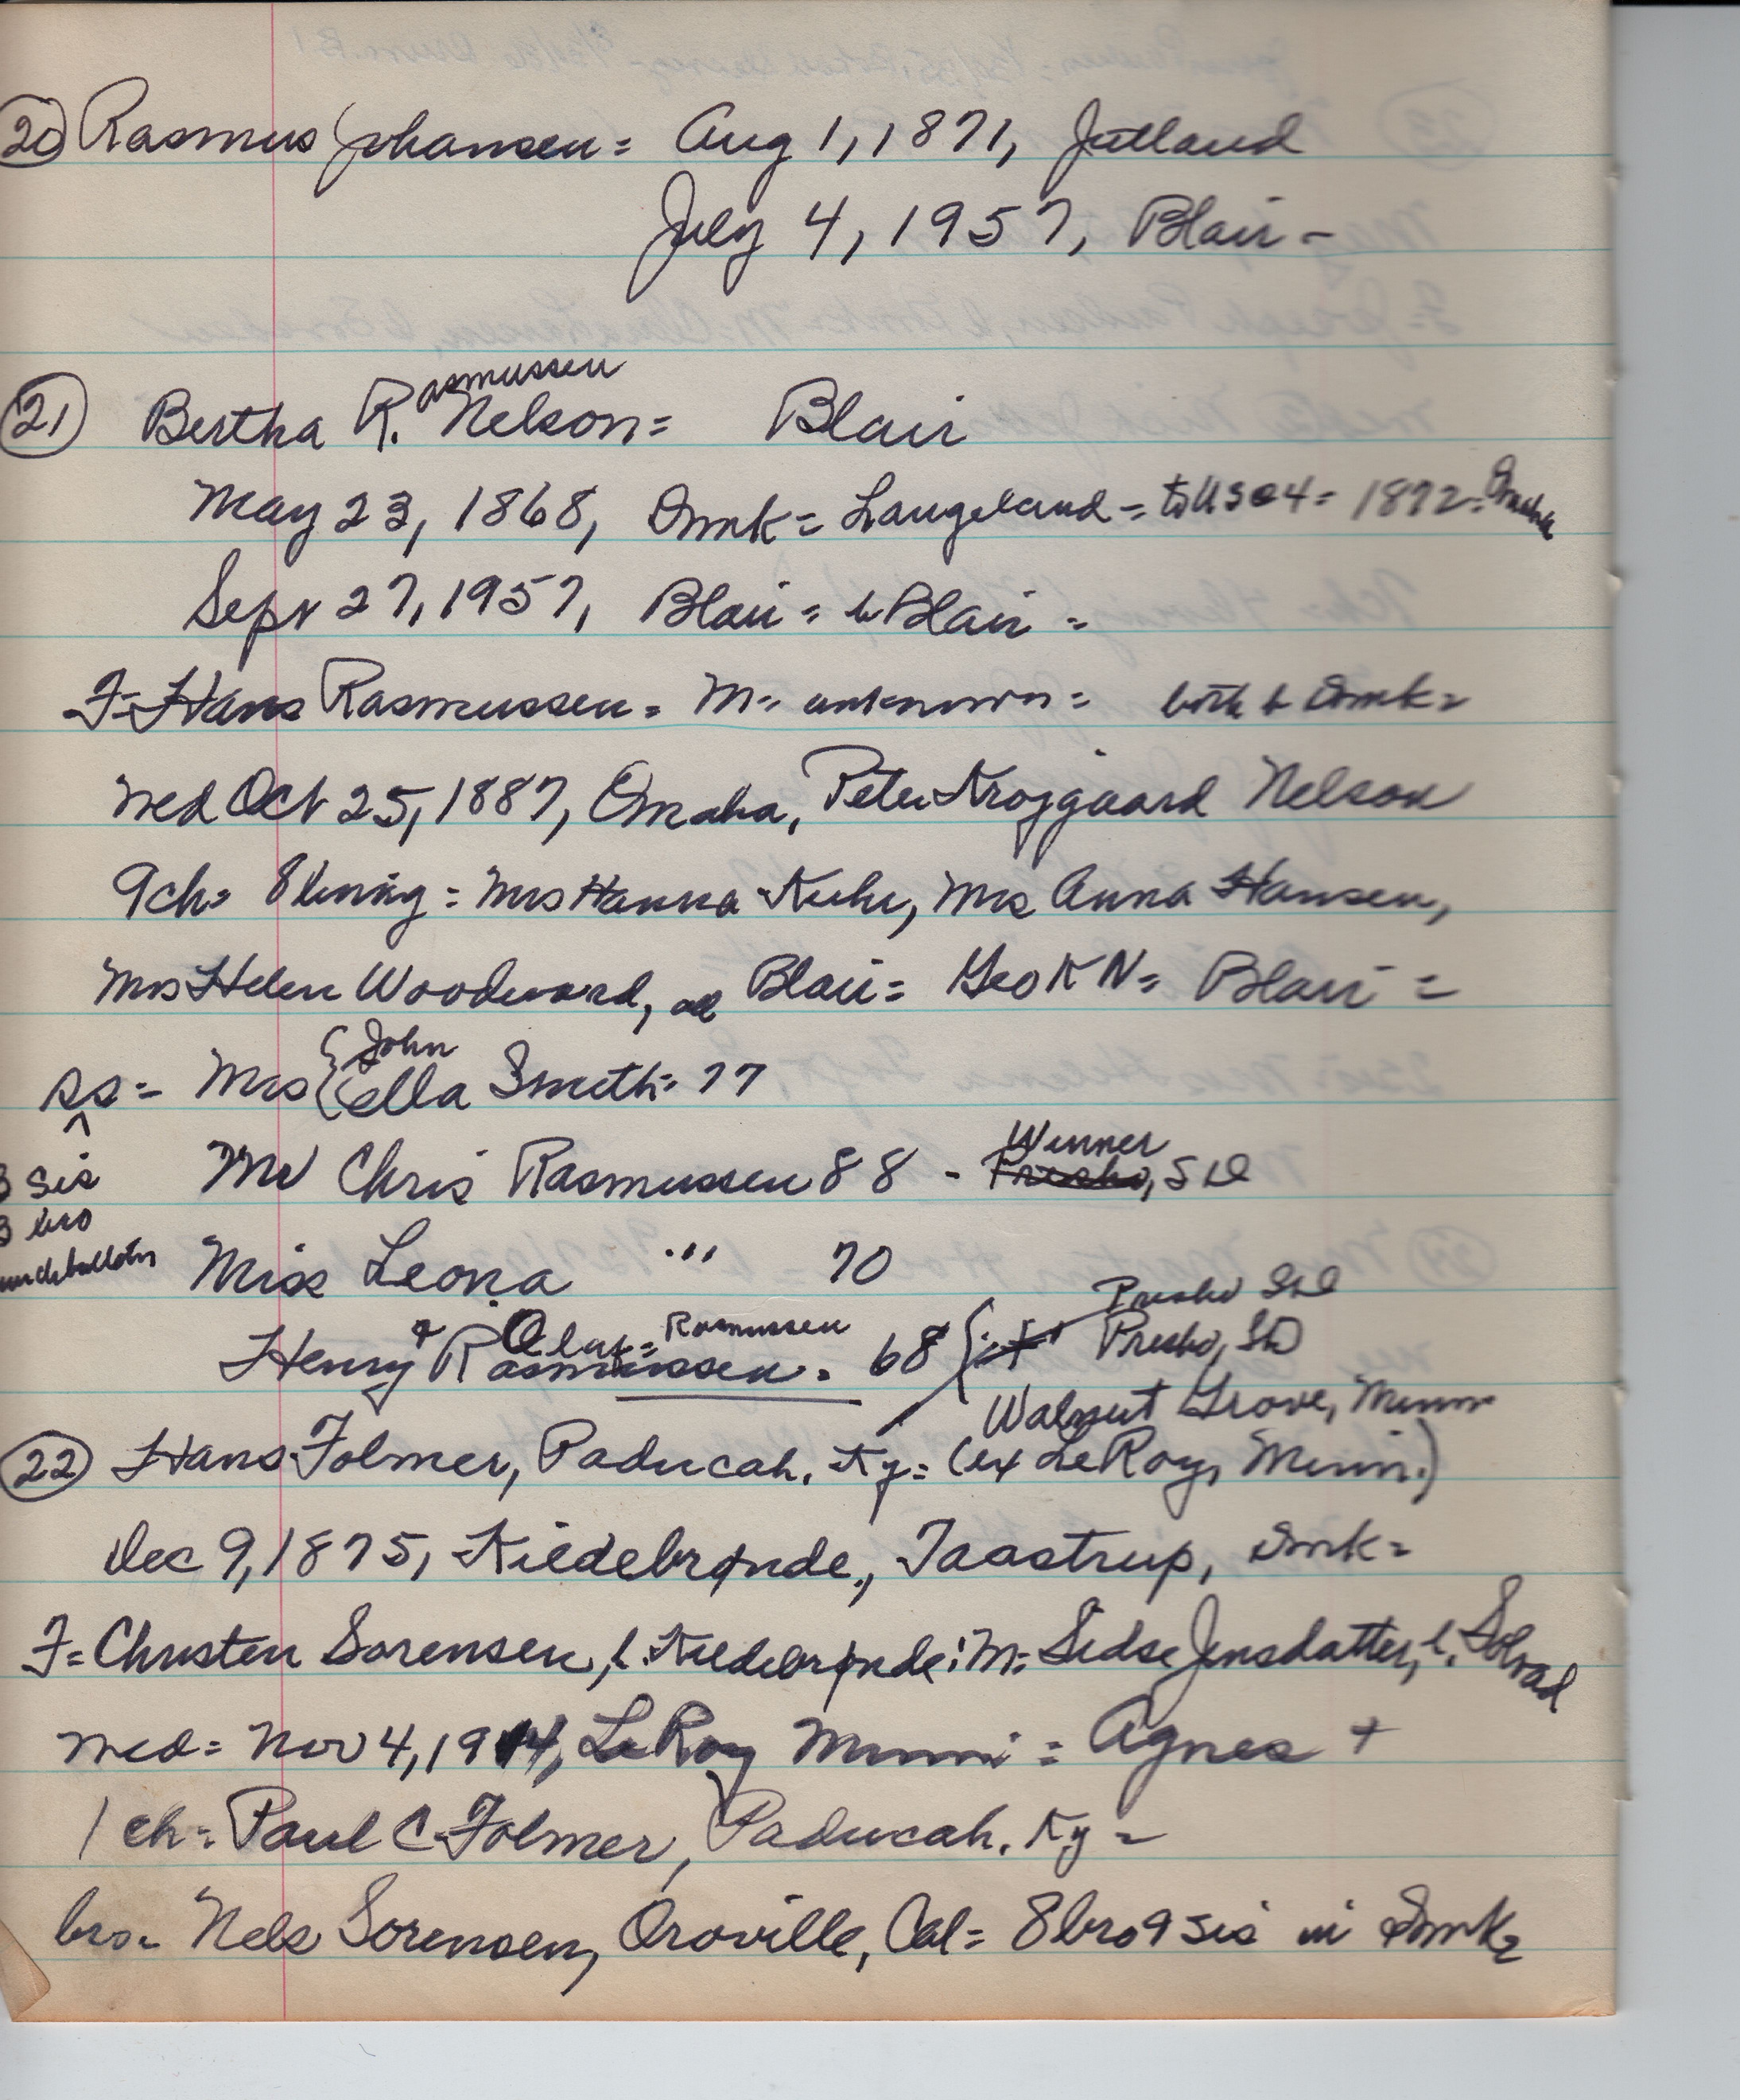 20 Rasmus Johansen = Aug 1, 1871, Jutland
July 4, 1957, Blair -
Rasmussen
21 Bertha R. Nelson = Blair
May 23, 1868, Dmk = Langeland = to US @ 4 = 1872 = Omaha
Sept 27, 1957, Blair = b Blair =
F = Hans Rasmussen = M = unknown = both b Dmk =
Med Oct 25, 1887, Omaha, Peter Kroggaard Nelson
9ch = 8 living = Mrs Hanna Kuhr, Mrs Anna Hansen,
Mrs Helen Woodward, all Blair = Geo K N = Blair =
John
ss = Mrs Ella Smith = 77
Winner
3 sis Mr Chris Rasmussen 88 - Presho, SD
3 bro
Miss Leona " 70
Presho SD
& Olaf = Rasmussen
Henry Rasmussen = 68 Presho, SD
Walnut Grove, Minn
22 Hans Folmer, Paducah, Ky = (ex LeRoy, Minn.)
Dec 9, 1875, Kildebrønde, Taastrup, Dmk =
F = Christen Sorensen, b. Kildebrønde; M = Sidse Jensdatter, b. Solrød
Med = Nov 4, 1914, LeRoy Minn = Agnes +
1 ch = Paul C Folmer, Paducah, Ky =
bro = Nels Sorensen, Oroville, Cal = 8 bro 9 sis in Dmk =